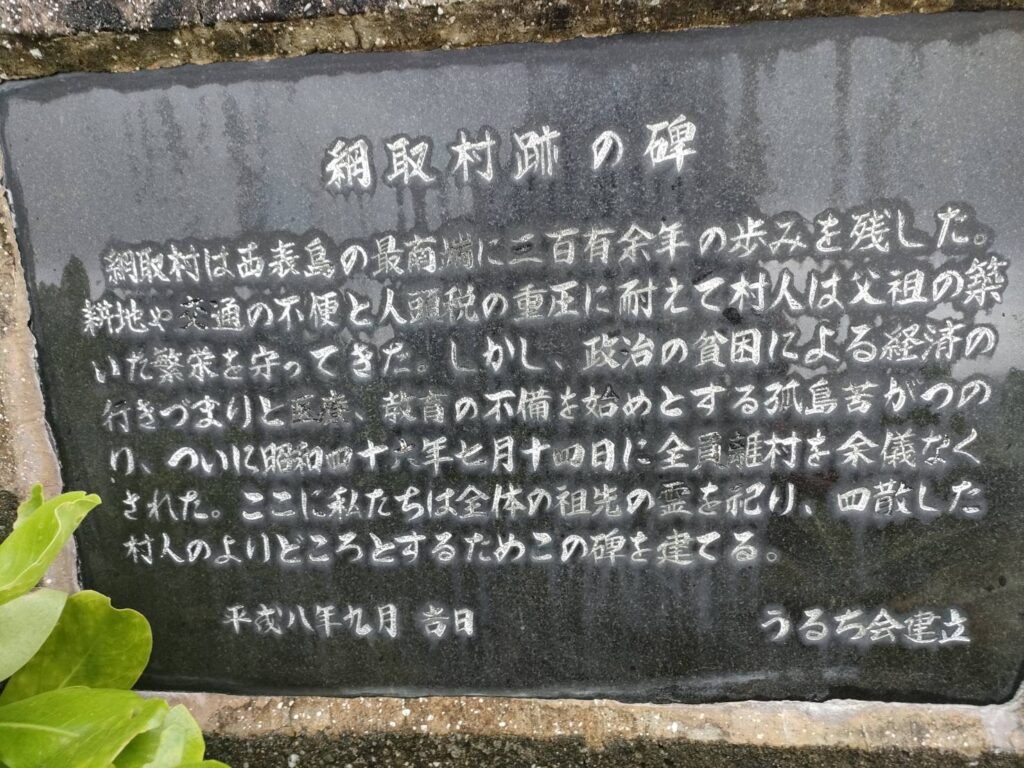 網取村跡の碑
網取村は西表島の最南端に二百有余年の歩みを残した。
耕地や交通の不便と人頭税の重圧に耐えて村人は父祖の築
いた繁栄を守ってきた。しかし、政治の貧困による経済の
行きづまりと医療、教育の不備を始めとする孤島苦がつの
り、ついに昭和四十六年七月十四日に全員離村を余儀なく
された。ここに私たちは全体の祖先の霊を祀り、四散した
村人のよりどころとするためこの碑を建てる。
平成八年九月 吉日
うるち会建立